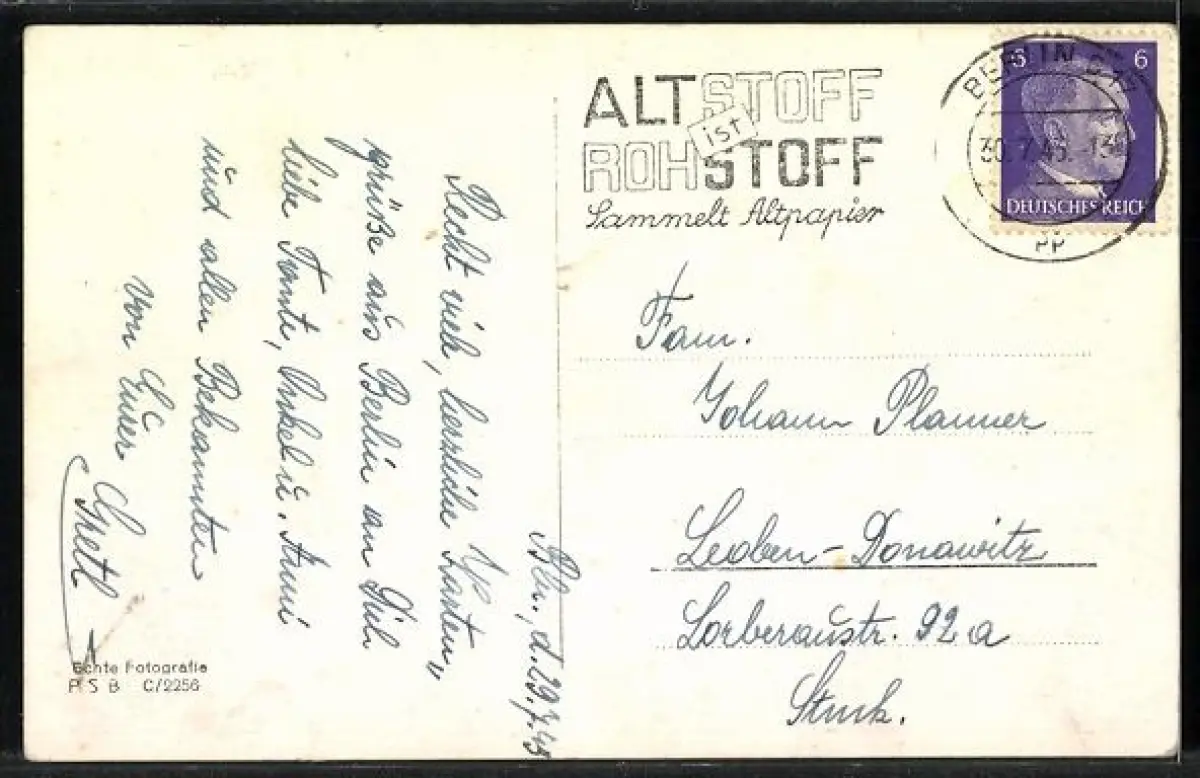 ALTSTOFF
ist
ROHSTOFF
Sammelt Altpapier
BERLIN
6 6
30.7.43. 13
DEUTSCHES REICH
Bln., d. 29.7.43
Recht viele, herzliche Karten„
grüße aus Berlin an Dich
liebe Tante, Onkel u. Anni
und allen Bekannten
von Eurer
Gretl
Fam.
Johann Planner
Leoben-Donawitz
Lorberaustr. 92a
Stmk.
Echte Fotografie
P S B C/2256